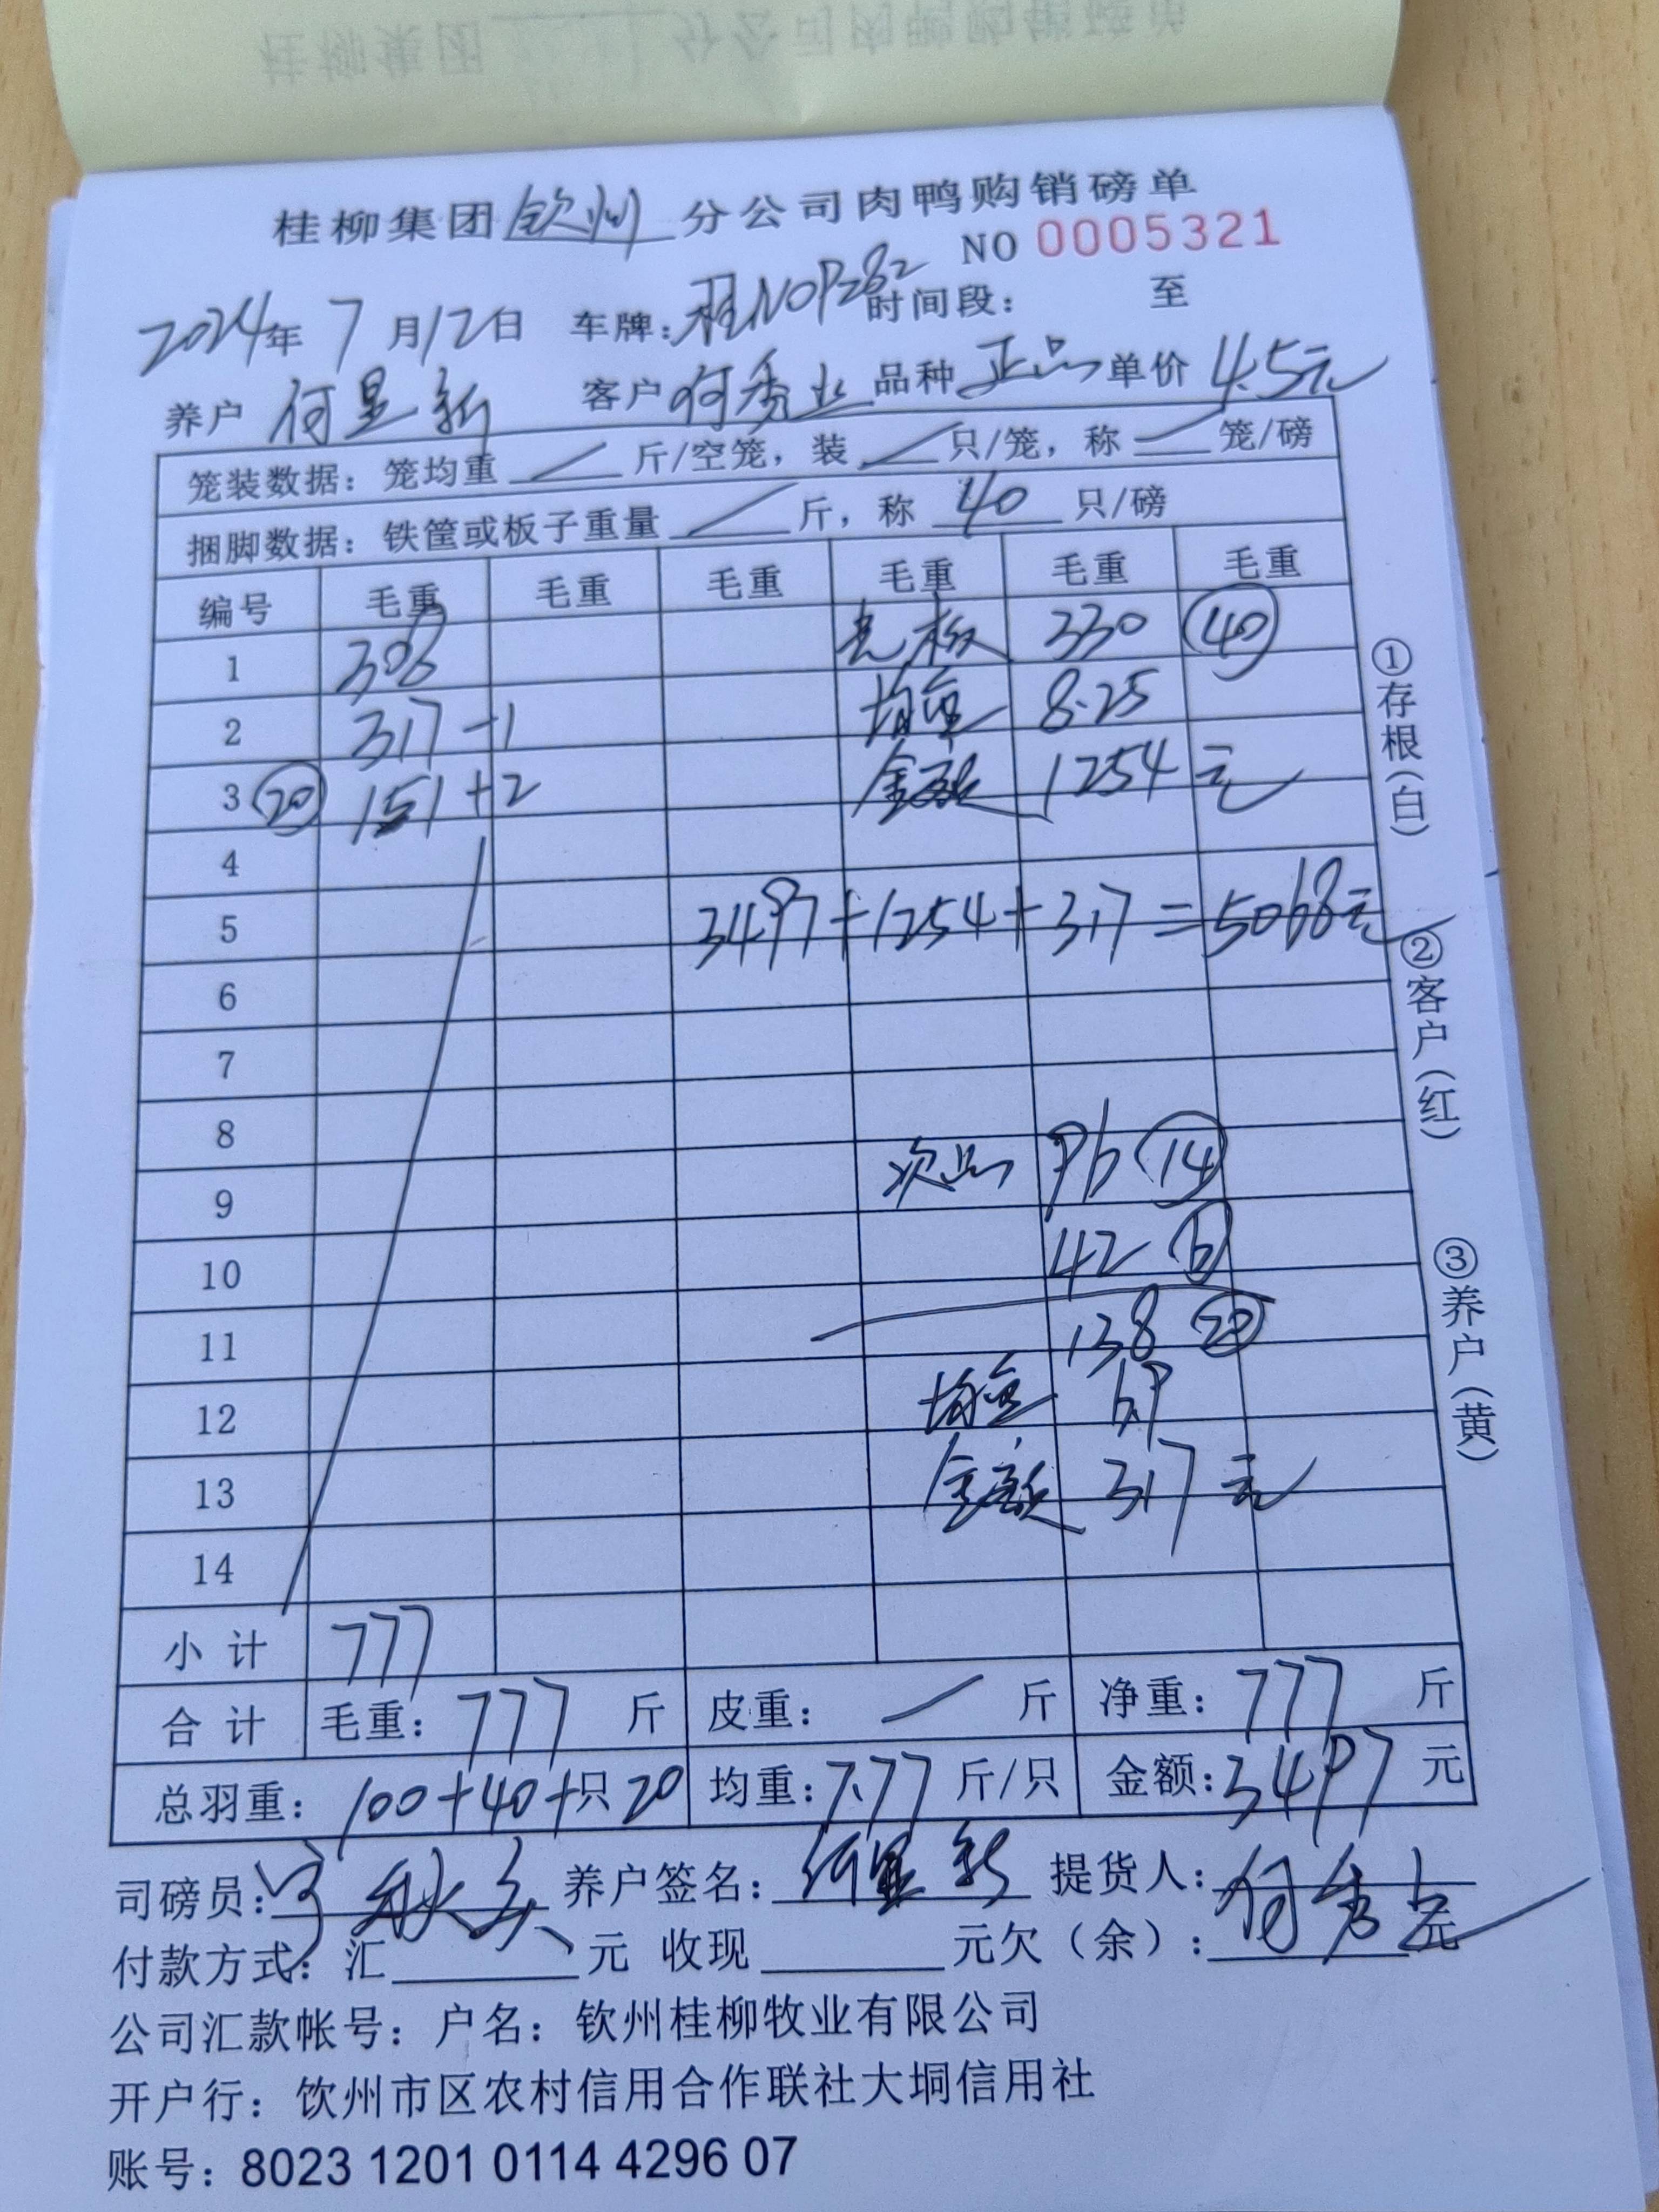 桂柳集团钦州分公司肉鸭购销磅单
NO 0005321
2024年7月12日 车牌:桂N0P282 时间段: 至
养户 何显新 客户 何秀 品种 正品 单价 4.5元
笼装数据: 笼均重 / 斤/空笼, 装 / 只/笼, 称 / 笼/磅
捆脚数据: 铁筐或板子重量 / 斤, 称 40 只/磅
编号 毛重 毛重 毛重 毛重 毛重 毛重
1 308 毛板 330 40
2 317 -1 均重 8.25
3 20 151 +2 金额 1254 元
4
5 3497+1254+317=5068元
6
7
8
9 次品 96 14
10 42 6
11 138 20
12 均重 6.9
13 金额 317 元
14
小计 777
合计 毛重: 777 斤 皮重: / 斤 净重: 777 斤
总羽重: 100+40+只20 均重:7.77斤/只 金额:3497元
司磅员: 养户签名:何显新 提货人:何秀
付款方式: 汇 元 收现 元欠(余): 元
公司汇款帐号: 户名: 钦州桂柳牧业有限公司
开户行: 饮州市区农村信用合作联社大垌信用社
账号: 8023 1201 0114 4296 07
①存根(白)
②客户(红)
③养户(黄)